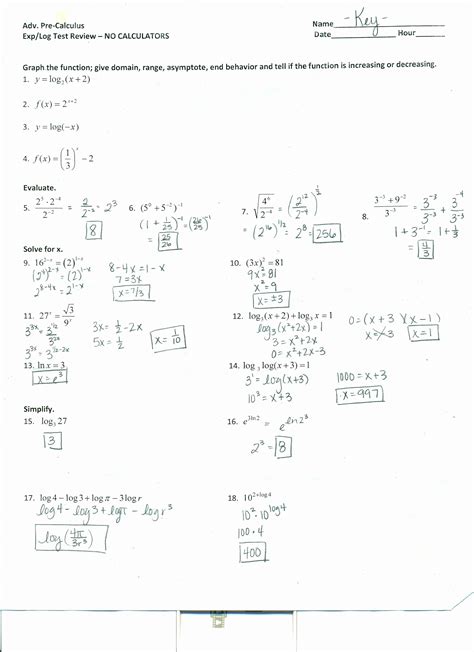 Adv. Pre-Calculus
Exp/Log Test Review – NO CALCULATORS
Name -Key-
Date Hour
Graph the function; give domain, range, asymptote, end behavior and tell if the function is increasing or decreasing.
1. y = log₃(x + 2)
2. f(x) = 2ˣ⁺²
3. y = log(−x)
4. f(x) = (1/3)ˣ − 2
Evaluate.
5. (2³ · 2⁻⁴)/2⁻² = 2/2⁻² = 2³
8
6. (5⁰ + 5⁻²)⁻¹
(1 + 1/25)⁻¹ = (26/25)⁻¹
= 25/26
7. √(4⁶/2⁻⁴) = (2¹²/2⁻⁴)^(1/2)
(2¹⁶)^(1/2) = 2⁸ = 256
8. (3⁻³ + 9⁻²)/3⁻³ = 3⁻³/3⁻³ + 3⁻⁴/3⁻³
1 + 3⁻¹ = 1 + 1/3
= 4/3
Solve for x.
9. 16²⁻ˣ = (2)¹⁻ˣ
(2⁴)²⁻ˣ = (2)¹⁻ˣ
2⁸⁻⁴ˣ = 2¹⁻ˣ
8 − 4x = 1 − x
7 = 3x
x = 7/3
10. (3x)² = 81
9x² = 81
x² = 9
x = ±3
11. 27ˣ = √3/9ˣ
3³ˣ = 3^(1/2)/3²ˣ
3³ˣ = 3^(1/2-2x)
3x = 1/2 − 2x
5x = 1/2
x = 1/10
12. log₃(x + 2) + log₃ x = 1
log₃(x² + 2x) = 1
3 = x² + 2x
0 = x² + 2x − 3
0 = (x + 3)(x − 1)
x = 1
13. ln x = 3
x = e³
14. log₃ log(x + 3) = 1
3¹ = log(x + 3)
10³ = x + 3
1000 = x + 3
x = 997
Simplify.
15. log₃ 27
3
16. e^(3 ln 2) = e^(ln 2³)
2³ = 8
17. log 4 − log 3 + log π − 3 log r
log 4 − log 3 + log π − log r³
log(4π/3r³)
18. 10^(2+log 4)
10² · 10^(log 4)
100 · 4
400